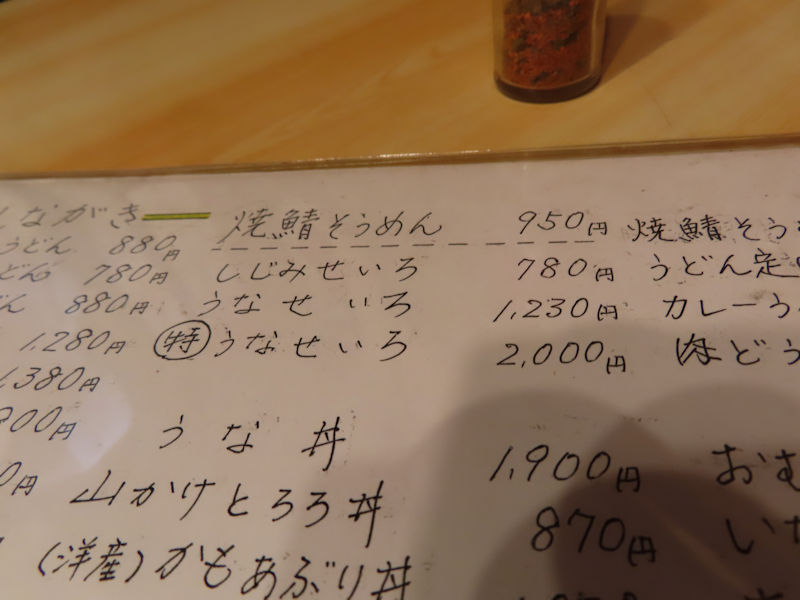 しながき 焼鯖そうめん 950円 焼鯖そう
うどん 880円 しじみせいろ 780円 うどん定
どん 780円 うなせいろ 1,230円 カレーう
ん 880円 ㊕うなせいろ 2,000円 肉どう
1,280円
1,380円
900円 うな丼 1,900円 おむ
0円 山かけとろろ丼 870円 い
(洋産)かもあぶり丼